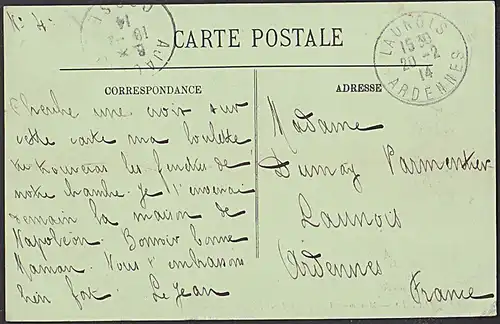 N° 4.
CARTE POSTALE
LAUNOIS
15 30
20 - 2
14
ARDENNES
CORRESPONDANCE
ADRESSE
Cherche une croix sur
cette carte ma loulette
tu trouveras les fenêtres de
notre chambre. Je t'enverrai
demain la maison de
Napoléon. Bonsoir bonne
Maman. Nous t'embrassons
bien fort. Le Jean
Madame
Dumay Parmentier
Launois
Ardennes
France